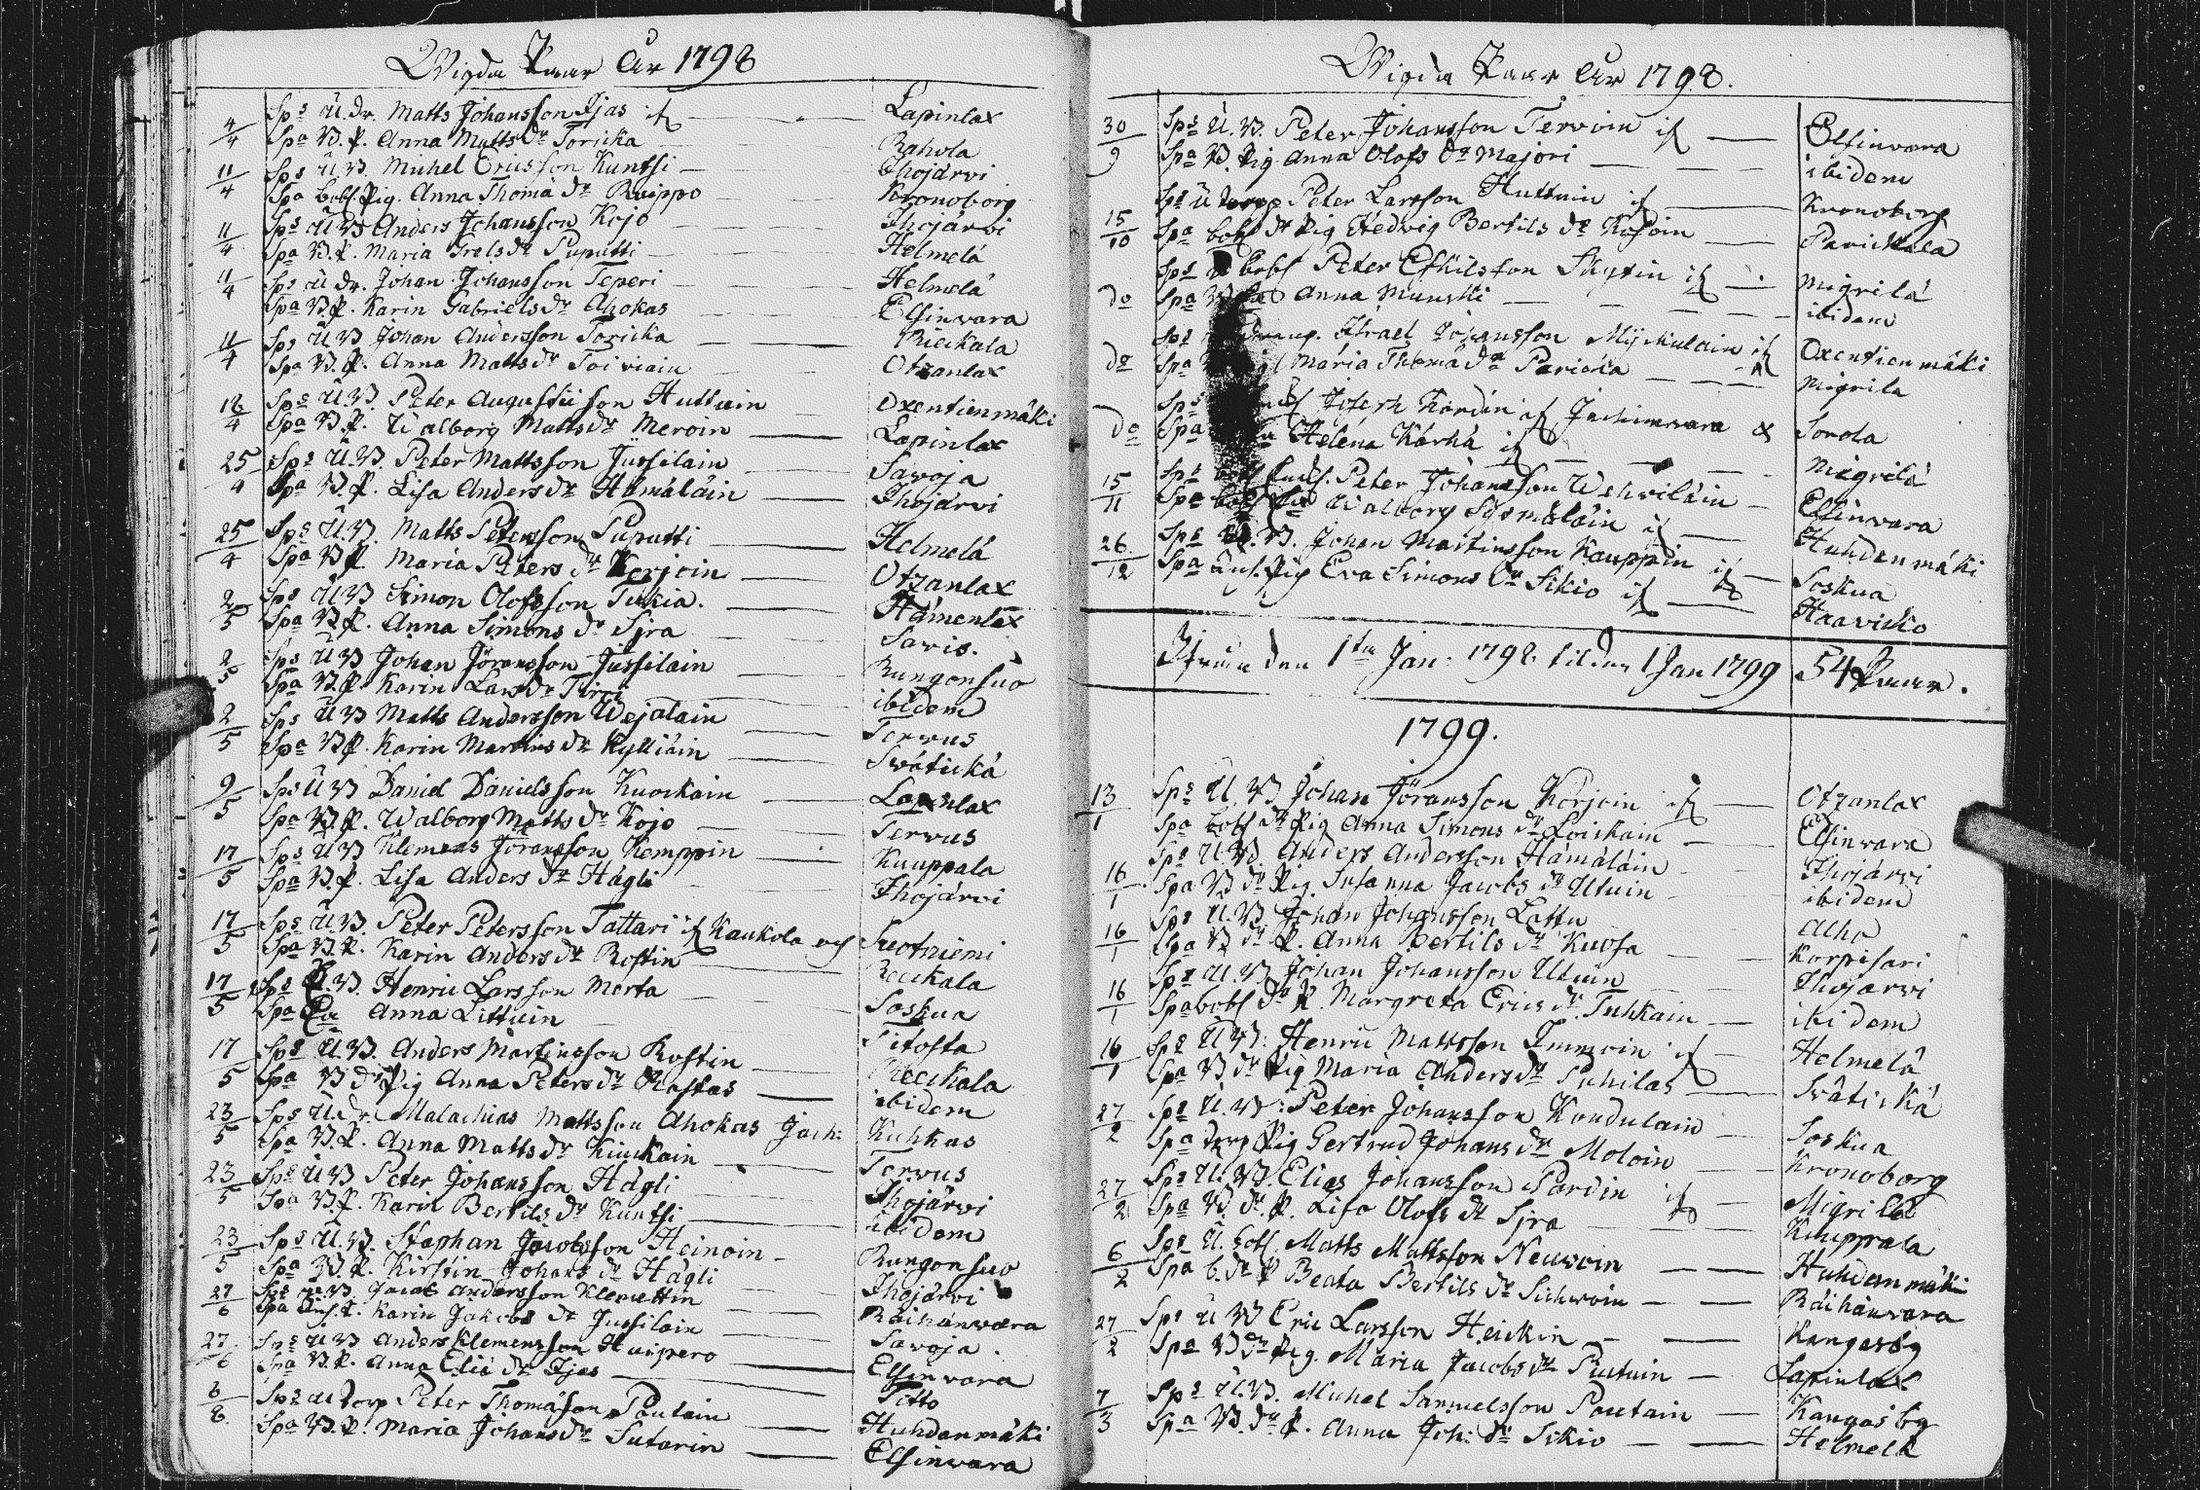 Wigda Paar År 1798
4/4 Sps U. Dr. Matts Johansson Ijas Lapinlax
Spa B. P. Anna Matts dr Toricka Rahola
11/4 Sps U. B. Michel Ericsson Kuntsi Ihojärvi
Spa bobs. Pig. Anna Thoma dr Ruippo Kronoborg
11/4 Sps U B Anders Johansson Kojo Ihojärvi
Spa B. P. Maria Irels dr Puputti Helmelä
11/4 Sps U Dr. Johan Johansson Teperi Helmelä
Spa B. P. Karin Gabriels dr Ahokas Elsinvara
11/4 Sps U B Johan Andersson Toricka Rieckala
Spa B. P. Anna Matts dr Toiviain Otzanlax
18/4 Sps U. B. Peter Augustinsson Huttuin Oxentienmäki
Spa B. P. Walborg Matts dr Meroin Lapinlax
25/4 Sps U. B. Peter Mattsson Jussilain Savoja
Spa B. P. Lisa Anders dr Hämäläin Ihojärvi
25/4 Sps U. B. Matts Petersson Puputti Helmelä
Spa B P. Maria Peters dr Korjoin Otzanlax
2/5 Sps U B Simon Olofsson Tukia. Hämenlax
Spa B. P. Anna Simons dr Sjra Savis.
2/5 Sps U B Johan Jöransson Jussilain Rungonsuo
Spa B. P. Karin Lars dr Tirri ibidem
2/5 Sps U B Matts Andersson Wejalain Tervus
Spa B. P. Karin Martins dr Kylliäin Svätickä
9/5 Sps U B Daniel Danielsson Kuockain Lapinlax
Spa B. P. Walborg Matts dr Kojo Tervus
17/5 Sps U B Klemens Jöransson Kemppin Kuuppala
Spa B. P. Lisa Anders dr Hägli Ihojärvi
17/5 Sps U. B. Peter Petersson Tattari if Kaukola och Suotniemi
Spa B. P. Karin Anders dr Rostin Rieckala
17/5 Sps B. Henric Larsson Merta Soskua
Spa Ea Anna Littuin Titosta
17/5 Sps U. B. Anders Martinsson Rostin Rieckala
Spa B dr Pig Anna Peters dr Rastas ibidem
23/5 Sps U. dr. Malachias Mattsson Ahokas Kuhkas
Spa B. P. Anna Matts dr Kiuckain Tervus
23/5 Sps U B Peter Johansson Hägli Ihojärvi
Spa B. P. Karin Bertils dr Kuntsi ibidem
23/5 Sps U. B. Staphan Jacobsson Heinoin Rungonsuo
Spa B. P. Kirstin Johans dr Hägli Ihojärvi
27/6 Sps Jacob Andersson Klemettin Raihanvara
Spa P. Karin Jakobs dr Jussilain Savoja.
27/6 Sps U B Anders Klemensson Huipero Elsinvara
Spa B. P. Anna Eliæ dr Ijas Titto
8/8 Sps U Torp Peter Thomasson Paulain Huhdanmäki
Spa B. P. Maria Johans dr Sutarin Elsinvara
Wigda Paar År 1798.
30/9 Sps U. B. Peter Johansson Tervoin if Elsinvara
Spa B. Pig Anna Olofs dr Majori ibidem
15/10 Sps U Torp Peter Larsson Huttuin if Kronoborg
Spa bobs dr Pig Hedvig Bertils dr Kojoin Parickala
do Sps bobs Peter Eskilsson Skyttin if Migrilä
Spa Anna Munski ibidem
do Sps Israel Johansson Myckulain if Oxentienmäki
Spa Maria Thoma dr Paricka Migrila
do Sps Joseph Kordin if Jachimvara & Sorola
Spa Helena Kärhä if Migrilä
15/11 Sps Peter Johansson Wehviläin Elsinvara
Spa Walborg Sysmäläin if Huhdenmäki
26/12 Sps B. Johan Martinsson Kauppin if Soskua
Spa Pig Eva Simons dr Sikiö if Haavisko
den 1ta Jan: 1798 til den 1 Jan 1799 54 Paar.
1799.
13/1 Sps U. B Johan Jöransson Korjoin if Otzanlax
Spa bobs dr Pig Anna Simons dr Loickain Elsinvara
16/1 Sps U. B. Anders Andersson Hämäläin Ihojärvi
Spa B dr Pig. Susanna Jacobs dr Utuin ibidem
16/1 Sps U. B. Johan Johansson Lattu Alho
Spa B dr P. Anna Bertils dr Kuosa Korpisari
16/1 Sps U. B. Johan Johansson Utuin Ihojärvi
Spa bobs dr P. Margreta Erics dr Tuhkain ibidem
16/1 Sps U B. Henric Mattsson Immoin if Helmelä
Spa B dr Pig Maria Anders dr Puhilas Svätickä
27/2 Sps U. B. Peter Johansson Kondulain Soskua
Spa Torp Pig Gertrud Johans dr Moloin Kronoborg
27/2 Sps U. B. Elias Johansson Pardin if Migrilä
Spa B. dr. P. Lisa Olofs dr Sjra Kuuppala
6/2 Sps U. bobs Matts Mattsson Neuvoin Huhdanmäki
Spa b. dr P Beata Bertils dr Sichvoin Räihänvara
27/2 Sps U B Eric Larsson Heickin Kangasby
Spa B dr Pig. Maria Jacobs dr Puutuin Lapinlax
7/3 Sps U. B. Michel Samuelsson Pautain Kangasby
Spa B. dr P. Anna Joh: dr Sikiö Helmelä